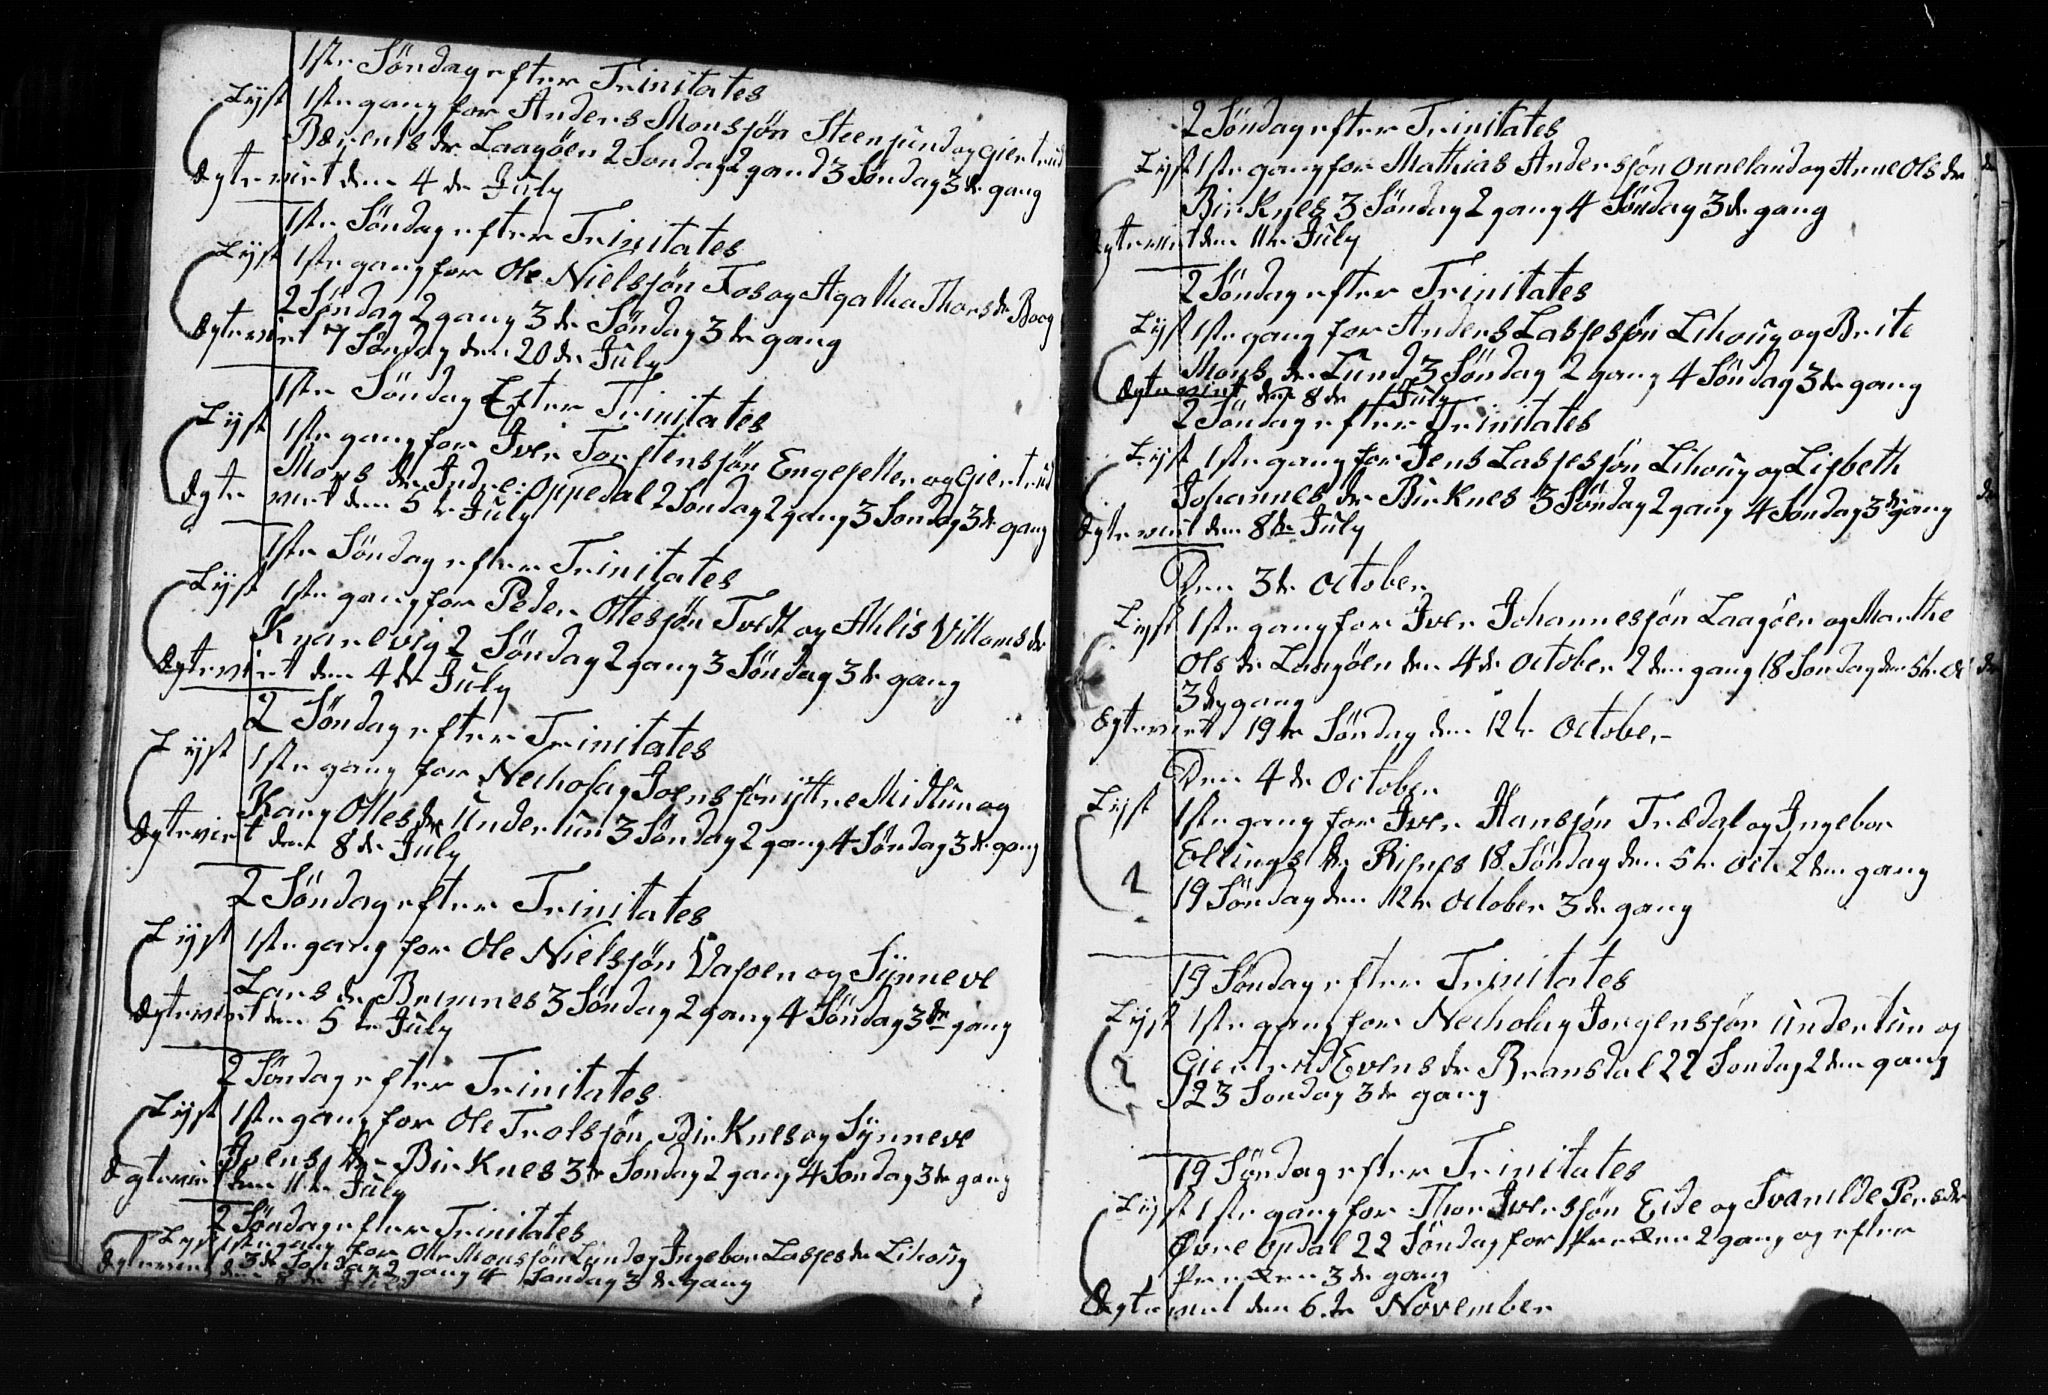 1ste Søndag efter Trinitates
Lyst 1ste gang for Anders Monsøn Steensund og Giertrud
Bærents dr Laagøen 2 Søndag 2 gand 3 Søndag 3de gang
Ægteviet den 4de July
1ste Søndag efter Trinitates
Lyst 1ste gang for Ole Nielssøn Fos og Agatha Thors dr Boog
2 Søndag 2 gang 3de Søndag 3de gang
Ægteviet 7 Søndag den 20de July
1ste Søndag Efter Trinitates
Lyst 1ste gang for Iver Torstenssøn Engesetter og Giertrud
Mons dr Indre Oppedal 2 Søndag 2 gang 3 Søndag 3de gang
Ægteviet den 5te July
1ste Søndag efter Trinitates
Lyst 1ste gang for Peder Ottesøn Tvedt og Ahlis Villoms dr
Kvarevig 2 Søndag 2 gang 3 Søndag 3de gang
Ægteviet den 4de July
2 Søndag efter Trinitates
Lyst 1ste gang for Necholay Joenssøn yttre Midtun og
Kary Ottes dr Undertun 3 Søndag 2 gang 4 Søndag 3de gang
Ægteviet den 8de July
2 Søndag efter Trinitates
Lyst 1ste gang for Ole Nielssøn Vasoen og Synneve
Lars dr Bremnes 3 Søndag 2 gang 4 Søndag 3de gang
Ægteviet den 5te July
2 Søndag efter Trinitates
Lyst 1ste gang for Ole Trolssøn Birknes og Synneve
Joens dr Birknes 3de Søndag 2 gang 4 Søndag 3de gang
Ægteviet den 11te July
2 Søndag efter Trinitates
Lyst 1ste gang for Ole Monssøn Lund og Ingebor Lasses dr Lihoug
3de Søndag 2 gang 4 Søndag 3de gang
Ægteviet den 8de July
2 Søndag efter Trinitates
Lyst 1ste gang for Mathias Anderssøn Onneland og Anne Ols dr
Birknes 3 Søndag 2 gang 4 Søndag 3de gang
Ægteviet den 11te July
2 Søndag efter Trinitates
Lyst 1ste gang for Anders Lassessøn Lihoug og Brite
Mons dr Lund 3 Søndag 2 gang 4 Søndag 3de gang
Ægteviet den 8de July
2 Søndag efter Trinitates
Lyst 1ste gang for Jens Lassessøn Lihoug og Lisbeth
Johannes dr Birknes 3 Søndag 2 gang 4 Søndag 3de gang
Ægteviet den 8de July
Den 3de October
Lyst 1ste gang for Iver Johannessøn Laagøen og Marthe
Ols dr Laagøen den 4de October 2den gang 18 Søndag den 5te Oc
3de gang
Ægteviet 19te Søndag den 12te October
Den 4de October
Lyst 1ste gang for Iver Hanssøn Trædal og Ingebor
Ellings dr Risnes 18 Søndag den 5te Octr 2den gang
1 19 Søndag den 12te October 3de gang
19 Søndag efter Trinitates
Lyst 1ste gang for Necholay Jorgenssøn Undertun og
2 Giertrud Evens dr Bransdal 22 Søndag 2den gang
23 Søndag 3de gang
19 Søndag efter Trinitates
Lyst 1ste gang for Thor Iverssøn Eide og Svanilde Pers dr
Øvre Opdal 22 Søndag for Preken 2 gang og efter
Preken 3de gang
Ægteviet den 6te November